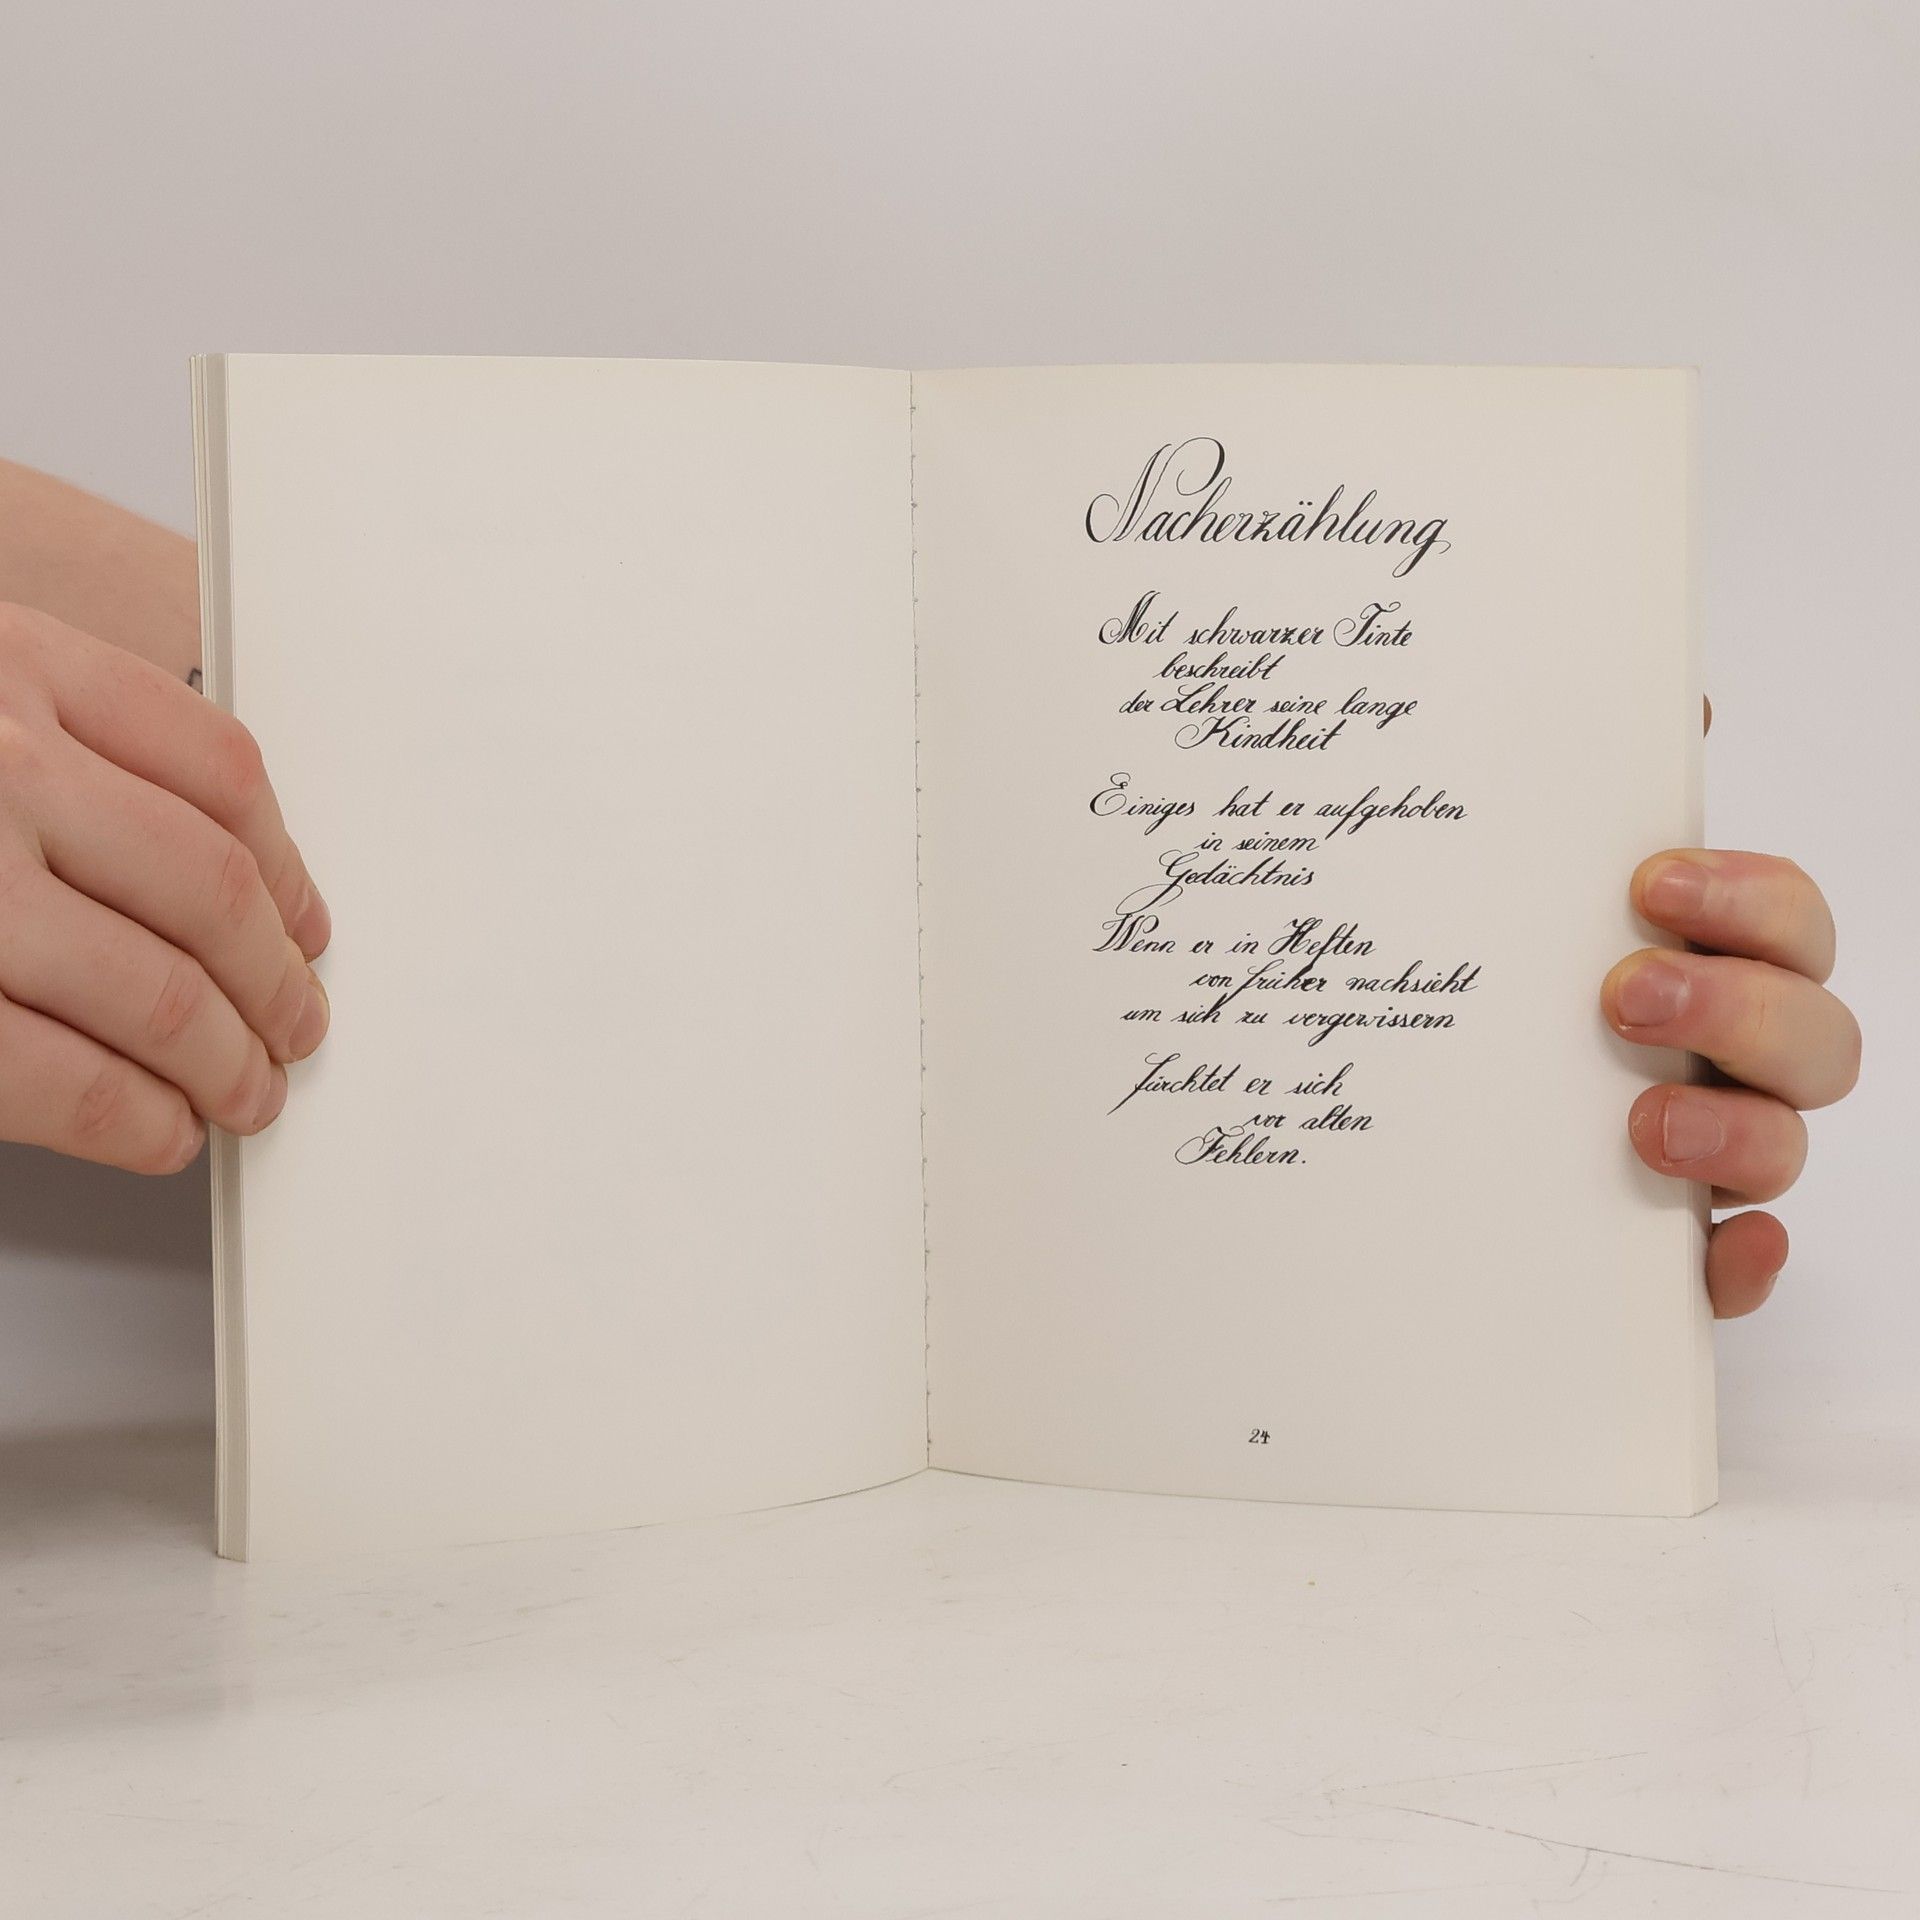 Nacherzählung
Mit schwarzer Tinte
beschreibt
der Lehrer seine lange
Kindheit
Einiges hat er aufgehoben
in seinem
Gedächtnis
Wenn er in Heften
von früher nachsieht
um sich zu vergewissern
fürchtet er sich
vor alten
Fehlern.
24